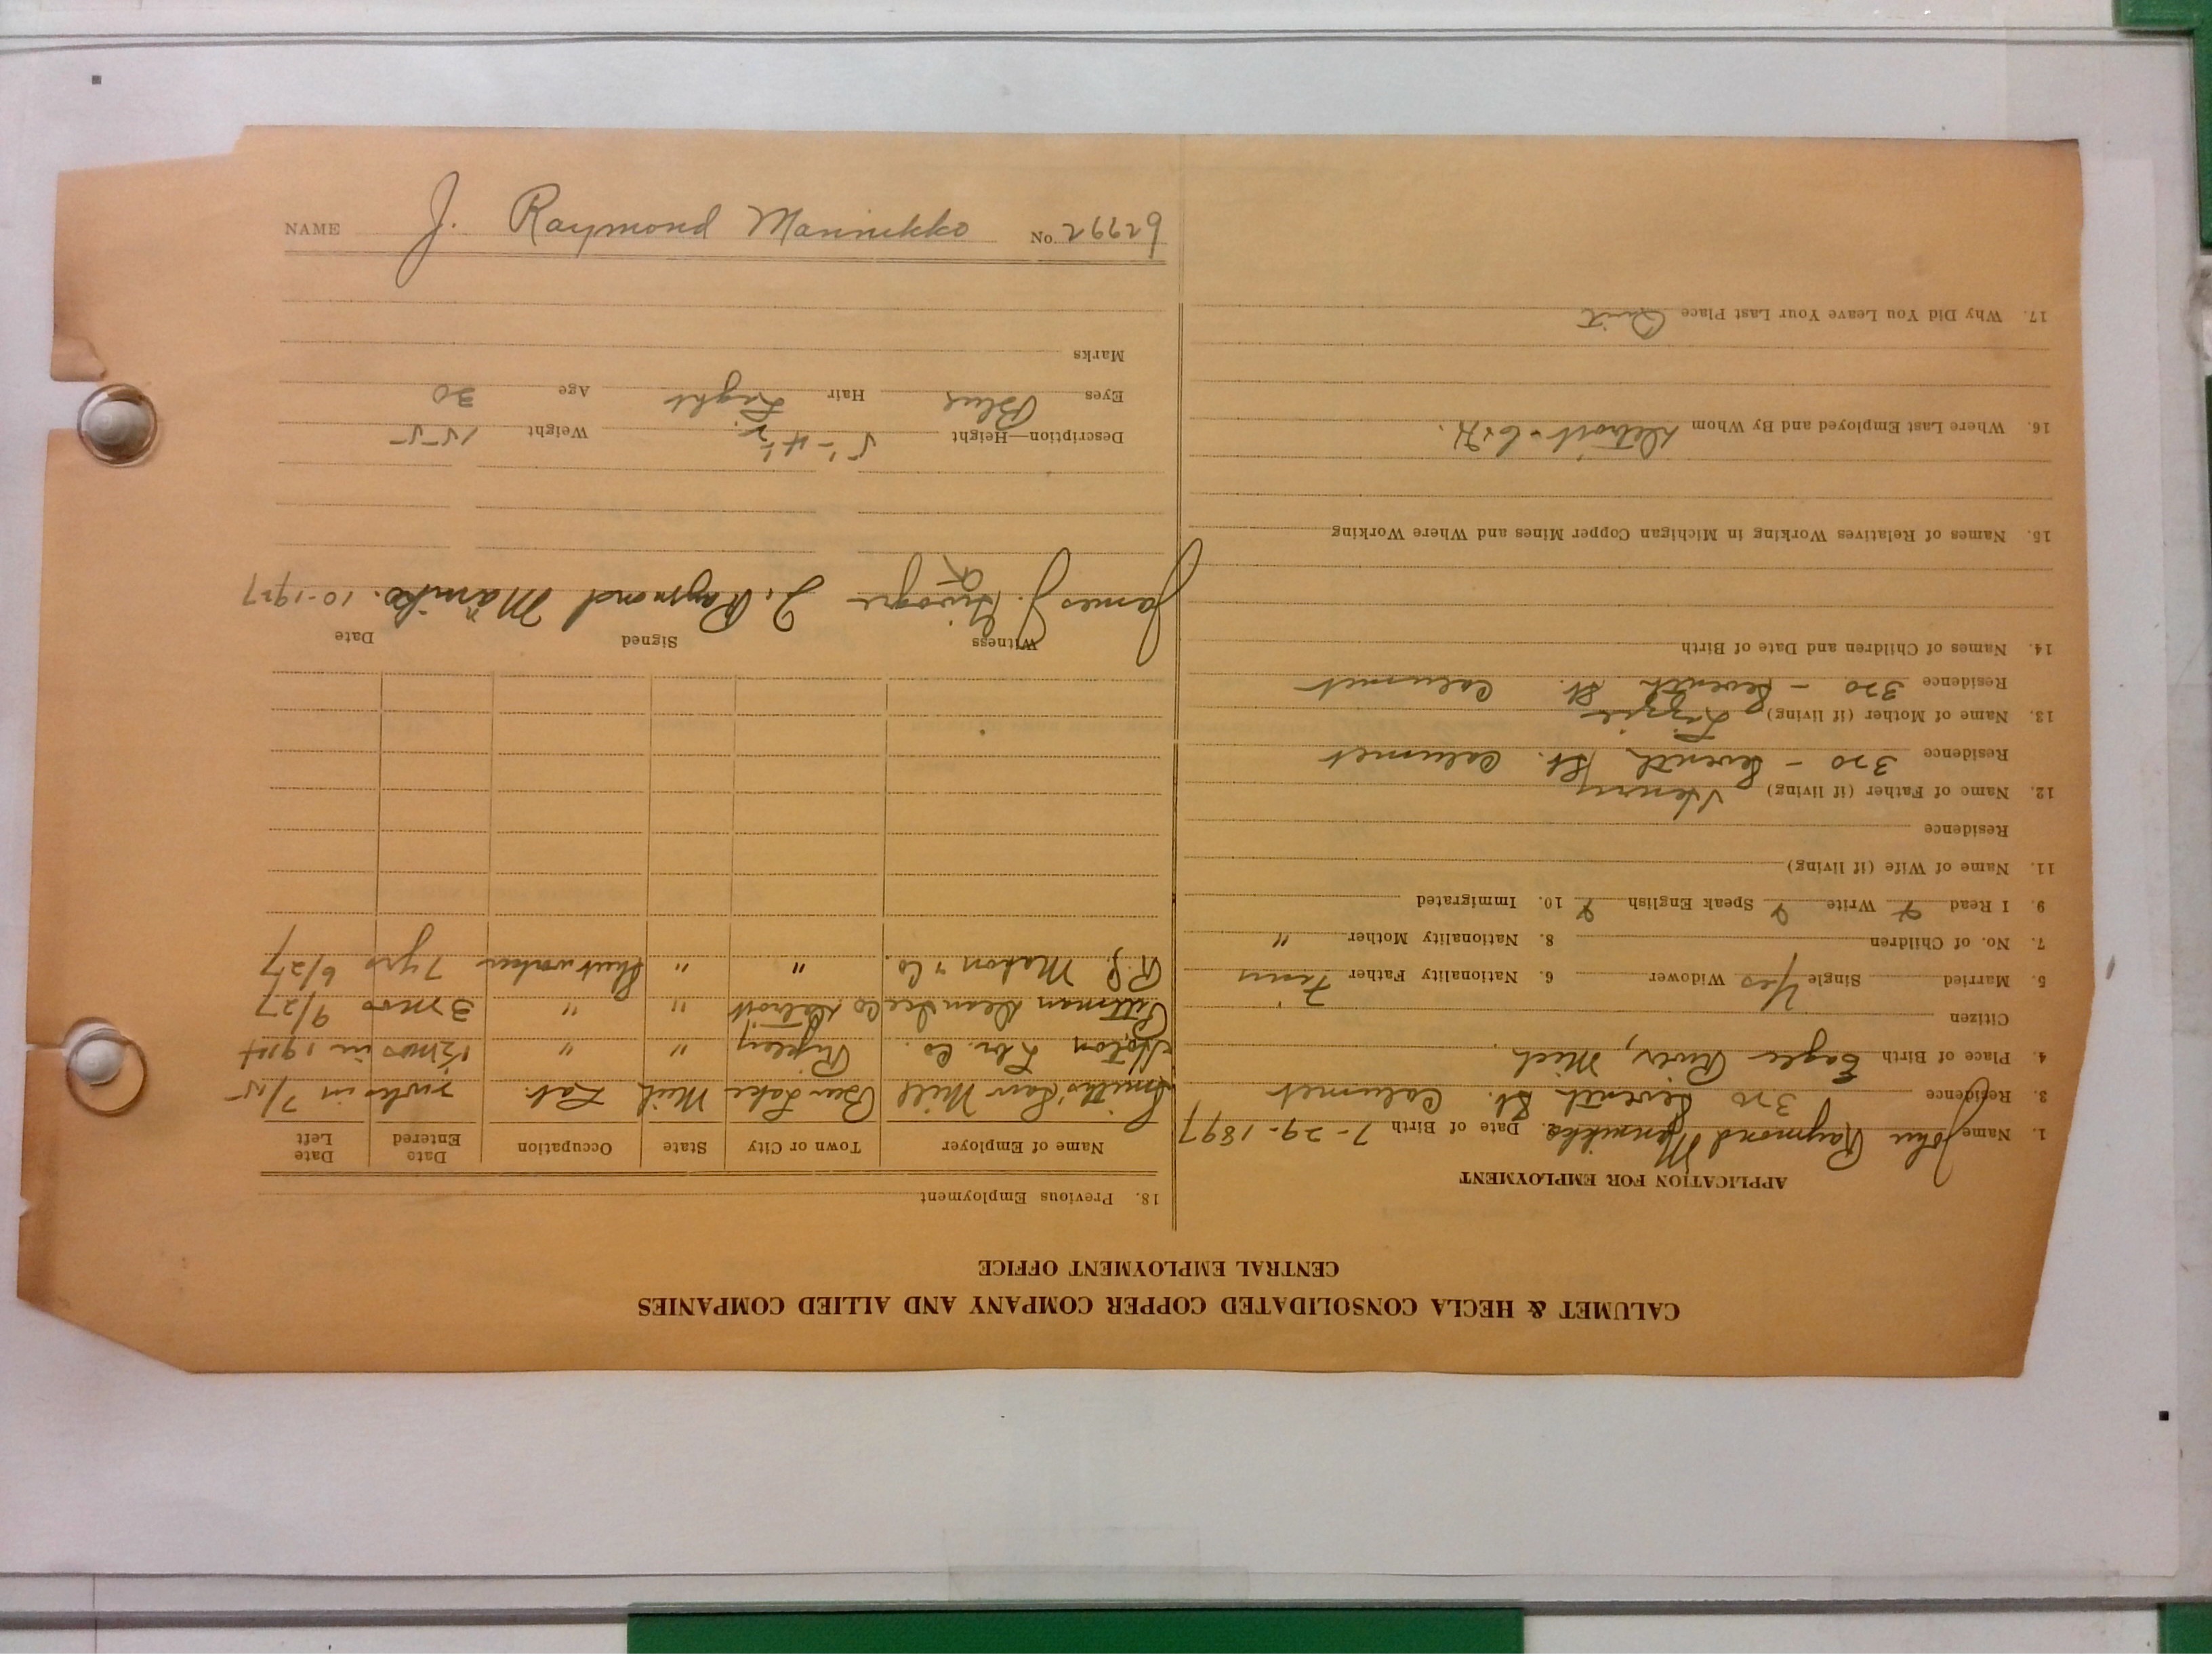 NAME J. Raymond Mannikko No. 27729
CALUMET & HECLA CONSOLIDATED COPPER COMPANY AND ALLIED COMPANIES
CENTRAL EMPLOYMENT OFFICE
APPLICATION FOR EMPLOYMENT
1. Name John Raymond Mannikko. Date of Birth 7-29-1897
3. Residence 320 Seventh St. Calumet
4. Place of Birth Eagle River, Mich
Citizen
5. Married Single Yes Widower 6. Nationality Father Finn
7. No. of Children 8. Nationality Mother "
9. I Read Write Speak English 10. Immigrated
11. Name of Wife (if living)
Residence
12. Name of Father (if living) Henry
Residence 320 - Seventh St. Calumet
13. Name of Mother (if living) Lizzie
Residence 320 - Seventh St. Calumet
14. Names of Children and Date of Birth
15. Names of Relatives Working in Michigan Copper Mines and Where Working
16. Where Last Employed and By Whom Detroit -
17. Why Did You Leave Your Last Place Quit
18. Previous Employment
Name of Employer Town or City State Occupation Date Entered Date Left
Smith's Saw Mill Lake Mich Lab. in 7/15
Lbr. Co. Ripley " " 1½ mos in 1914
Co Detroit " " 3 mos 9/27
R.J. Mahon & Co. " " 7 yrs 6/27
Witness Signed Date
James J. J. Raymond Männikö. 10-1927
Description—Height 5'-4½" Weight 155
Eyes Blue Hair Light Age 30
Marks